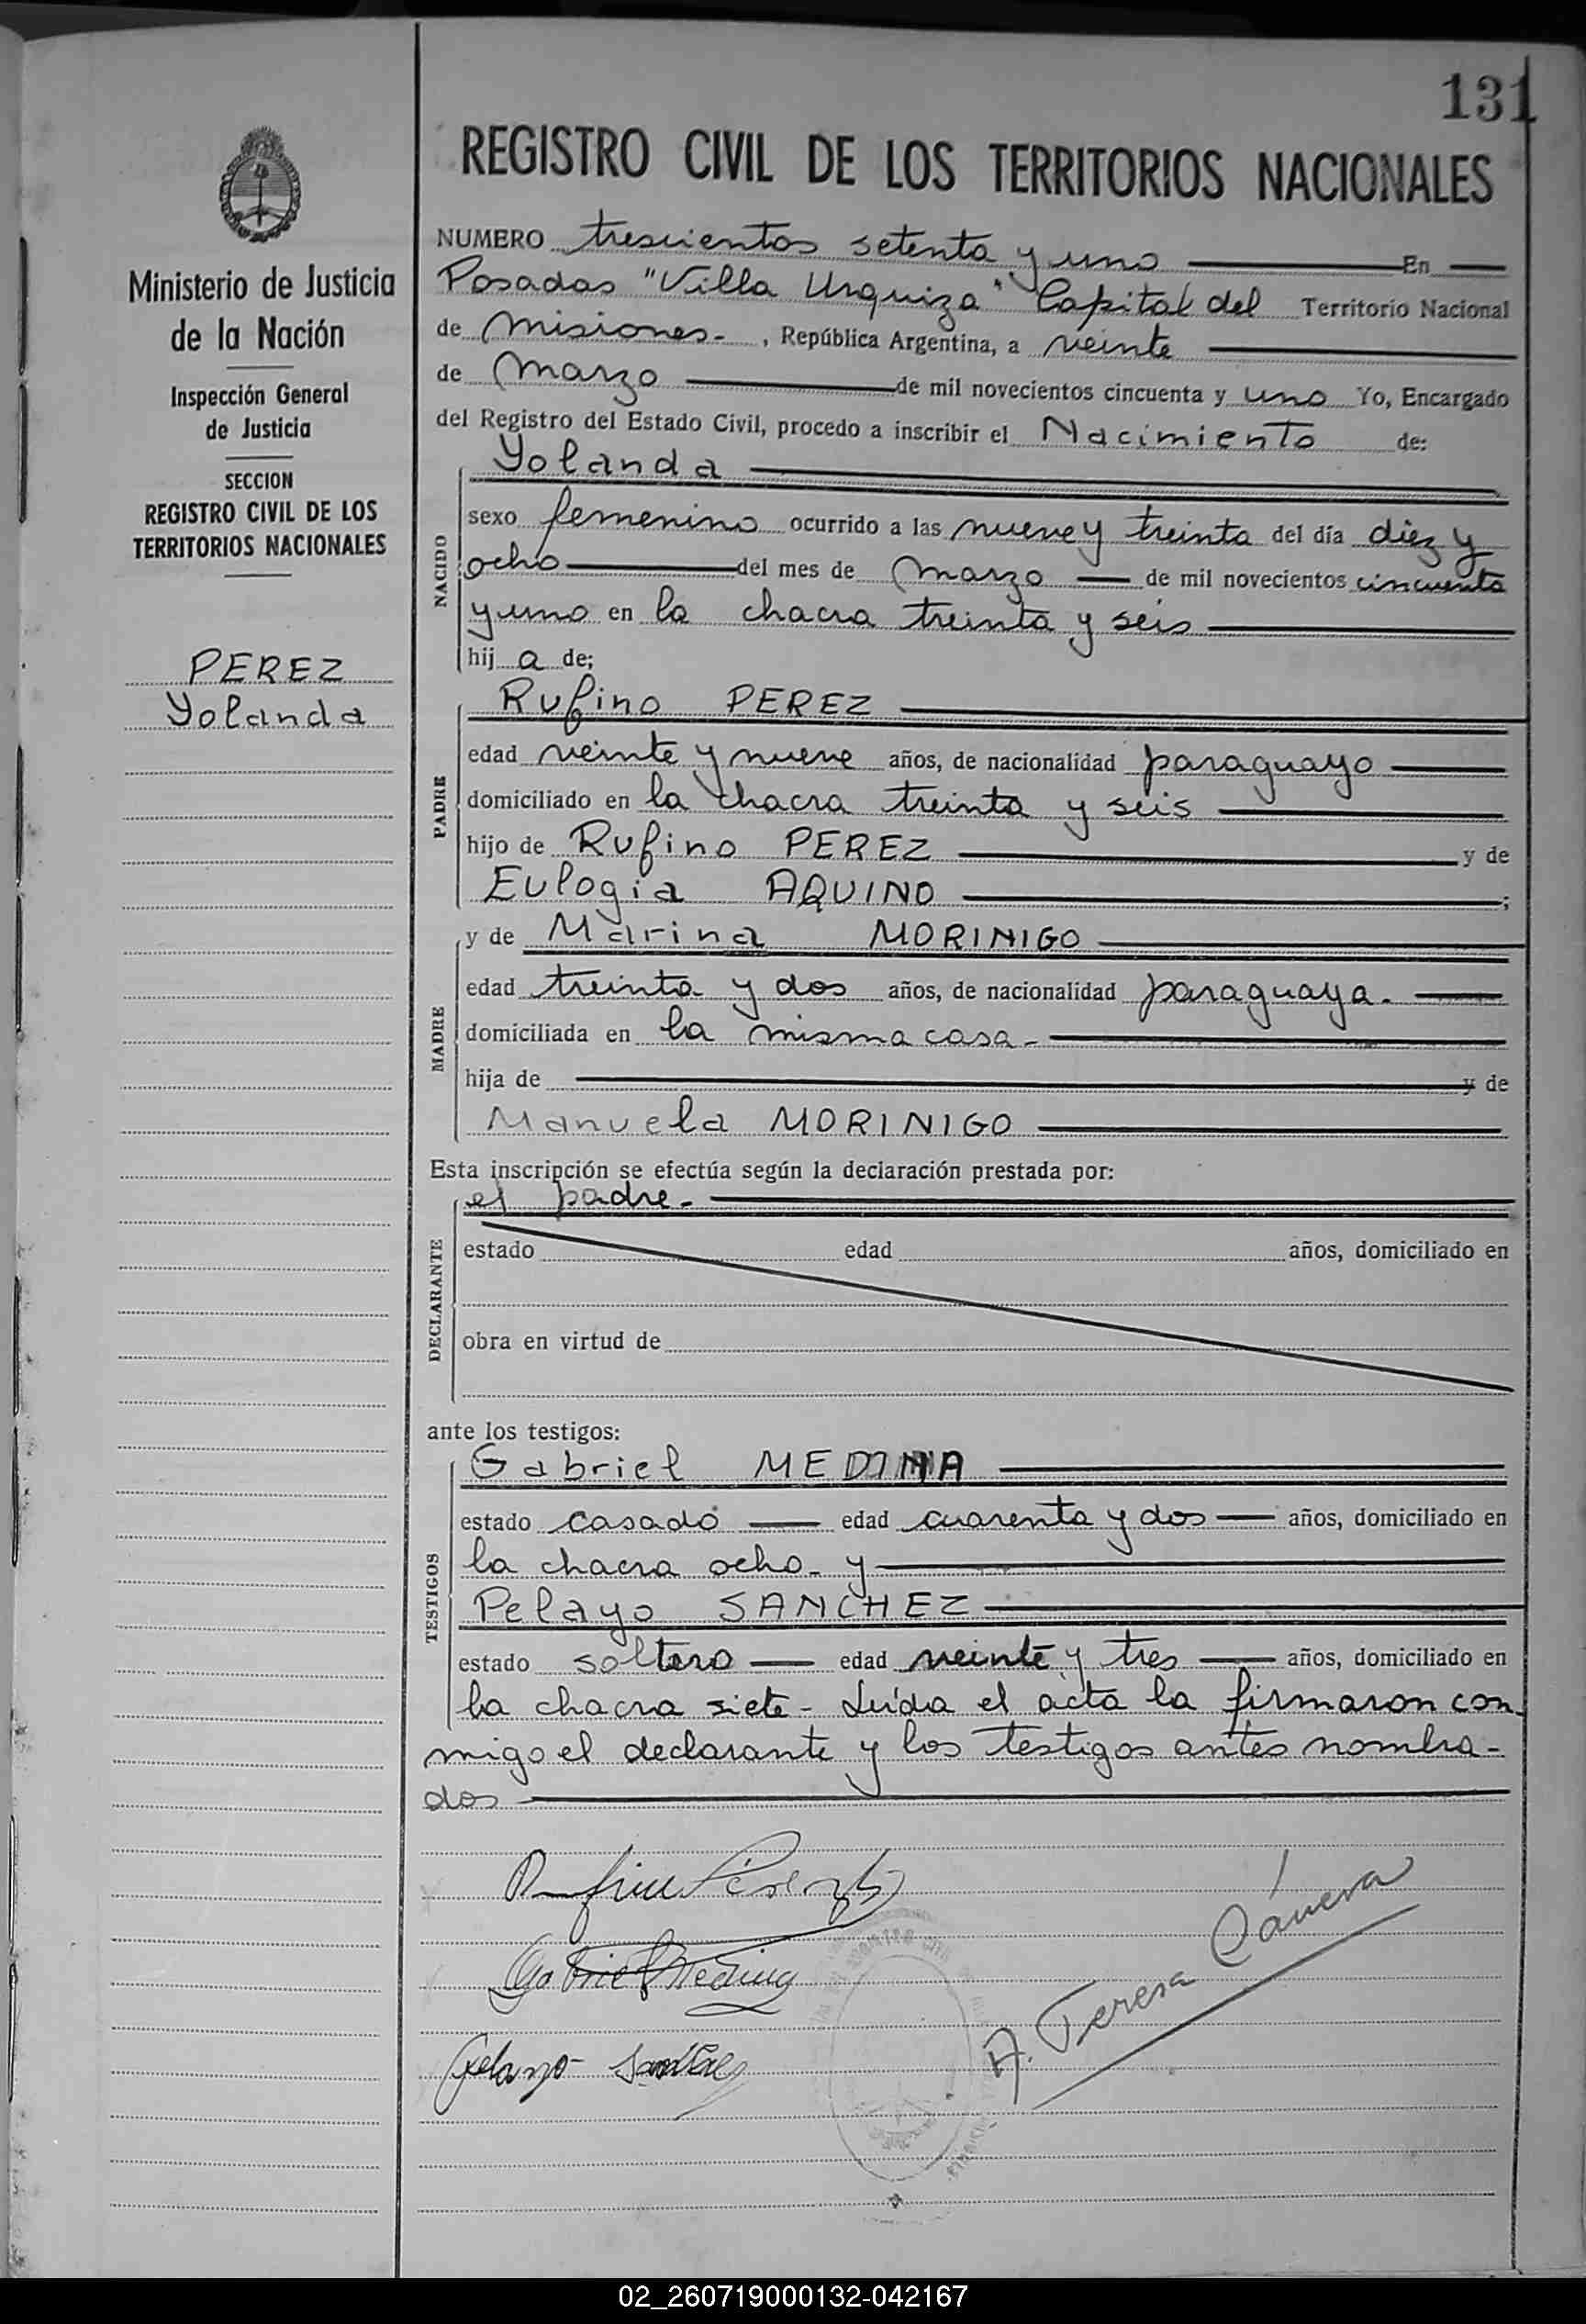 131
REGISTRO CIVIL DE LOS TERRITORIOS NACIONALES
Ministerio de Justicia
de la Nación
Inspección General
de Justicia
SECCION
REGISTRO CIVIL DE LOS
TERRITORIOS NACIONALES
PEREZ
Yolanda
NUMERO trescientos setenta y uno En
Posadas "Villa Urquiza" Capital del Territorio Nacional
de Misiones- , República Argentina, a veinte
de Marzo de mil novecientos cincuenta y uno Yo, Encargado
del Registro del Estado Civil, procedo a inscribir el Nacimiento de:
NACIDO
Yolanda
sexo femenino ocurrido a las nueve y treinta del día diez y
ocho del mes de Marzo de mil novecientos cincuenta
y uno en la chacra treinta y seis
hij a de;
PADRE
Rufino PEREZ
edad veinte y nueve años, de nacionalidad paraguayo
domiciliado en la chacra treinta y seis
hijo de Rufino PEREZ y de
Eulogia AQUINO ;
MADRE
y de Marina MORINIGO
edad treinta y dos años, de nacionalidad paraguaya.
domiciliada en la misma casa-
hija de y de
Manuela MORINIGO
Esta inscripción se efectúa según la declaración prestada por:
DECLARANTE
el padre-
estado edad años, domiciliado en
obra en virtud de
ante los testigos:
TESTIGOS
Gabriel MEDINA
estado casado edad cuarenta y dos años, domiciliado en
la chacra ocho- y
Pelayo SANCHEZ
estado soltero edad veinte y tres años, domiciliado en
la chacra siete- Leída el acta la firmaron con
migo el declarante y los testigos antes nombra-
dos
Rufino Perez
Gabriel Medina
Pelayo Sanchez
A. Teresa Cáneva
02_260719000132-042167